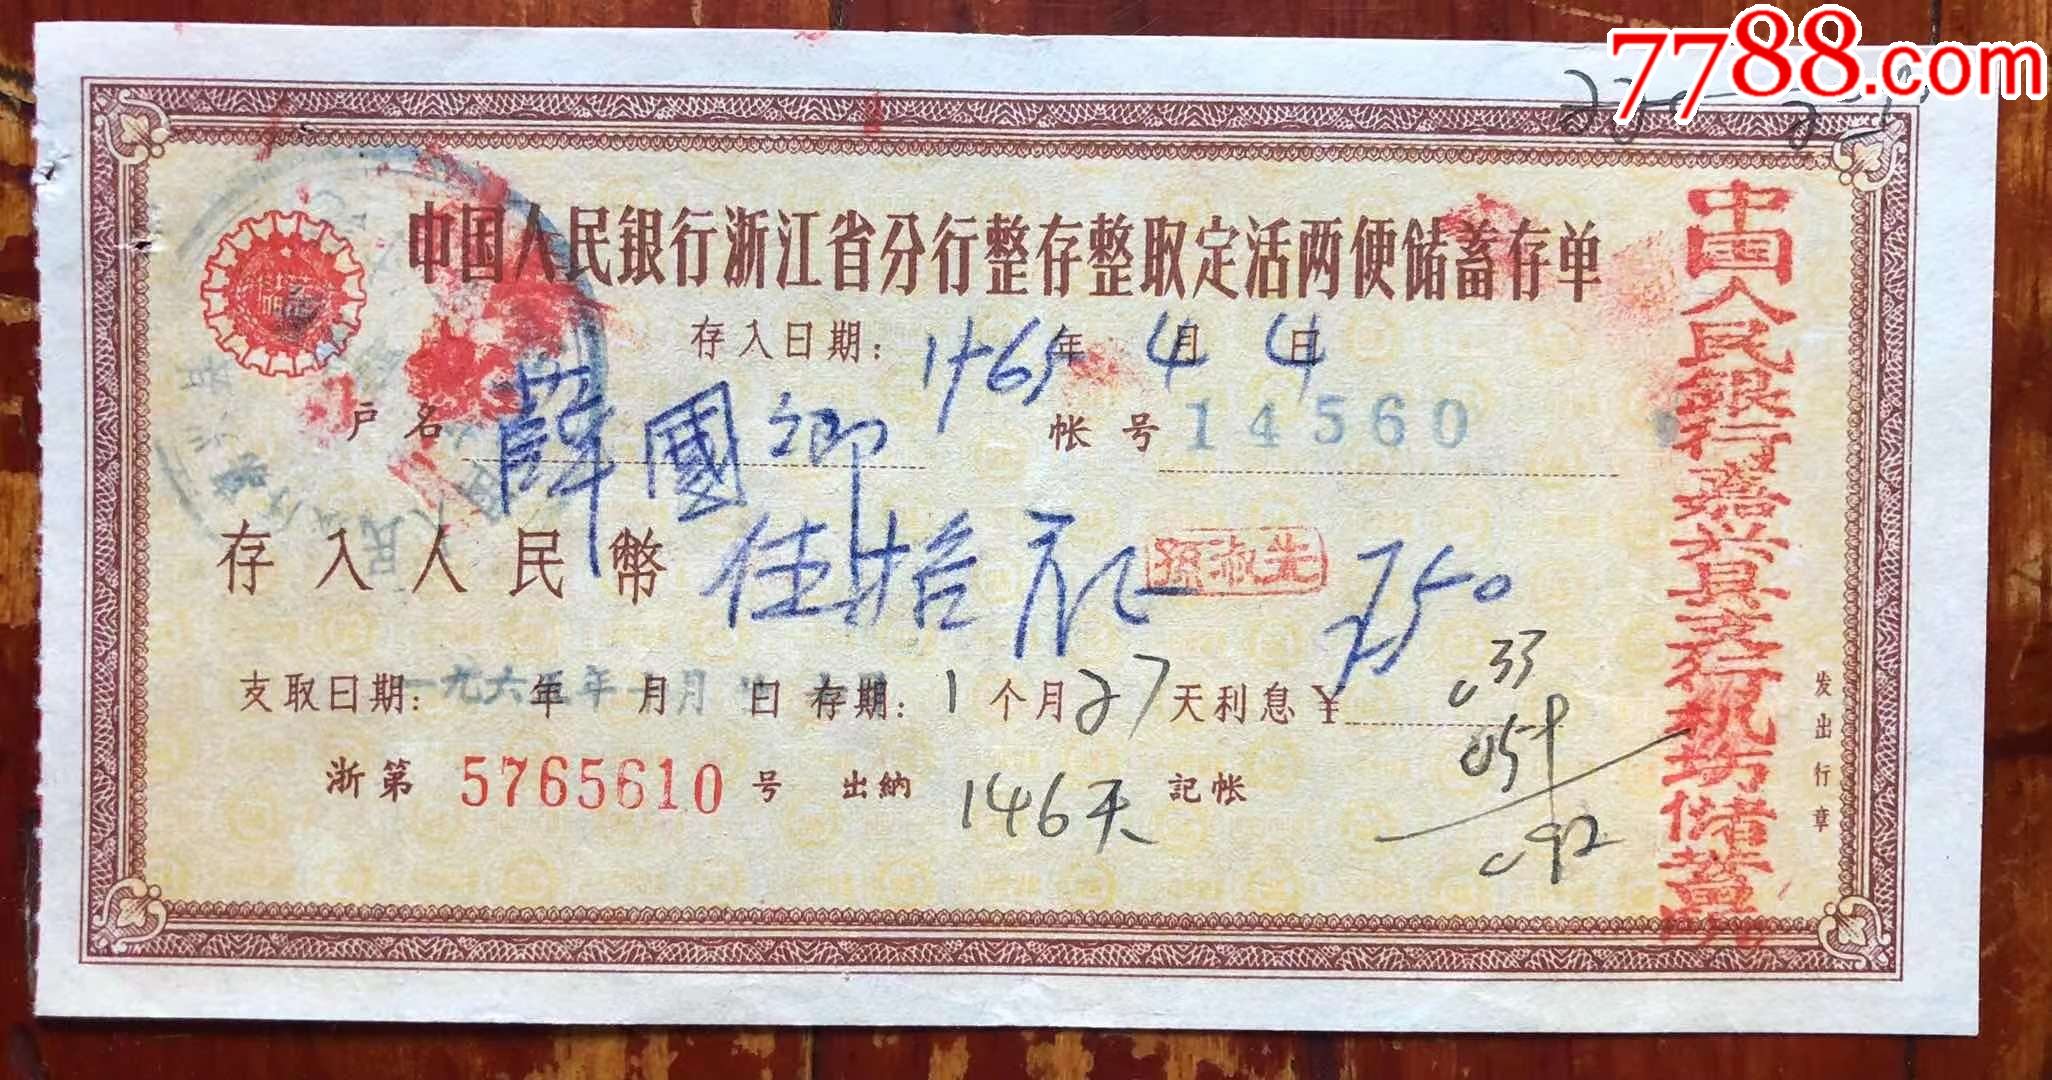 7788.com
中国人民银行浙江省分行整存整取定活两便储蓄存单
存入日期: 1965年 4月 4日
户名 薛國卿 帐号 14560
存入人民幣 伍拾元 孫淑先 ¥50
支取日期: 一九六五年 月 日 存期: 1 个月 27 天 利息 ¥
033
059
092
浙第 5765610 号 出納 146天 記帐
中国人民银行嘉兴县支行
储蓄
发出行章